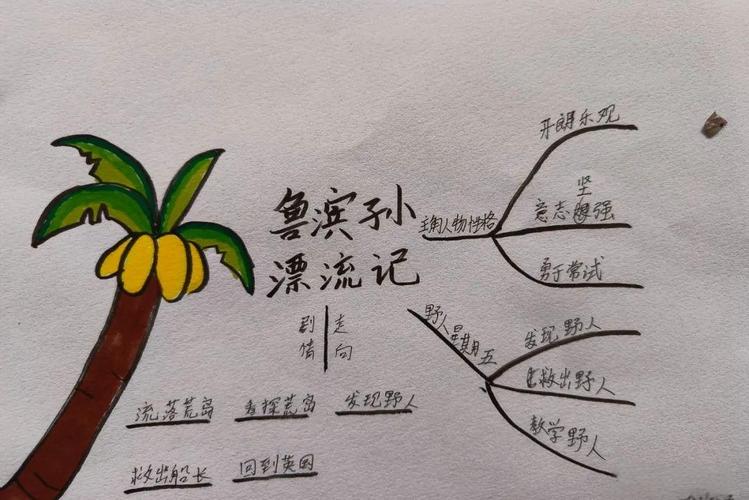 鲁滨孙
漂流记
主角人物性格
开朗乐观
意志坚强
勇于常试
野人星期五
发现野人
救出野人
教学野人
剧情
走向
流落荒岛
看探荒岛
发现野人
救出船长
回到英国